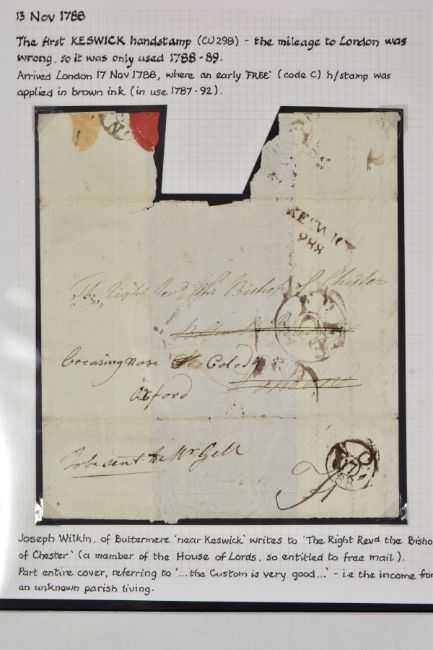 13 Nov 1788
The first KESWICK handstamp (CU298) - the mileage to London was
wrong, so it was only used 1788-89.
Arrived London 17 Nov 1788, where an early 'FREE' (code C) h/stamp was
applied in brown ink (in use 1787-92).
KESWICK
288
The Right Revd the Bishop of Chester
Creasing nose Coledg
Oxford
London
To be sent to Mr Gell
NO
17
88
Joseph Wilkin, of Buttermere 'near Keswick' writes to 'The Right Revd the Bisho
of Chester' (a member of the House of Lords, so entitled to free mail).
Part entire cover, referring to '...the Custom is very good...' - i.e the income for
an unknown parish living.